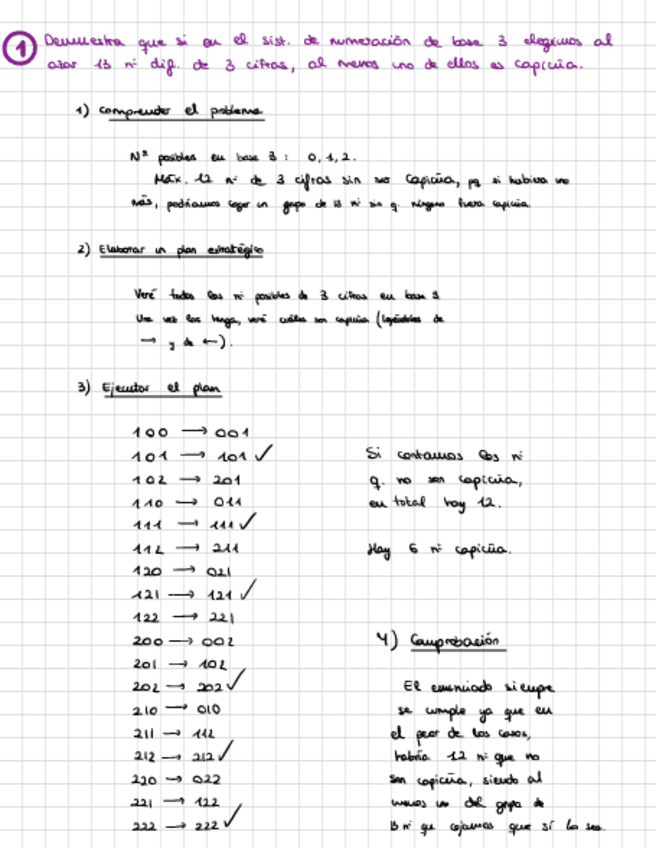 1 Demuestra que si en el sist. de numeración de base 3 elegimos al
azar 13 nº dif. de 3 cifras, al menos uno de ellos es capicúa.
1) Comprender el problema
Nº posibles en base 3 : 0, 1, 2.
Máx. 12 nº de 3 cifras sin ser capicúa, pq si hubiera
más, podríamos coger un grupo de 13 nº sin q. ninguno fuera capicúa
2) Elaborar un plan estratégico
Veré todos los nº posibles de 3 cifras en base 3
Una vez los tenga, veré cuáles son capicúa ( de
→ y de ←).
3) Ejecutar el plan
100 → 001
101 → 101 ✓
102 → 201
110 → 011
111 → 111 ✓
112 → 211
120 → 021
121 → 121 ✓
122 → 221
200 → 002
201 → 102
202 → 202 ✓
210 → 010
211 → 112
212 → 212 ✓
220 → 022
221 → 122
222 → 222 ✓
Si contamos los nº
q. no son capicúa,
en total hay 12.
Hay 6 nº capicúa.
4) Comprobación
El enunciado siempre
se cumple ya que en
el peor de los casos,
habría 12 nº que no
son capicúa, siendo al
menos uno del grupo de
13 nº que cojamos que sí lo sea.